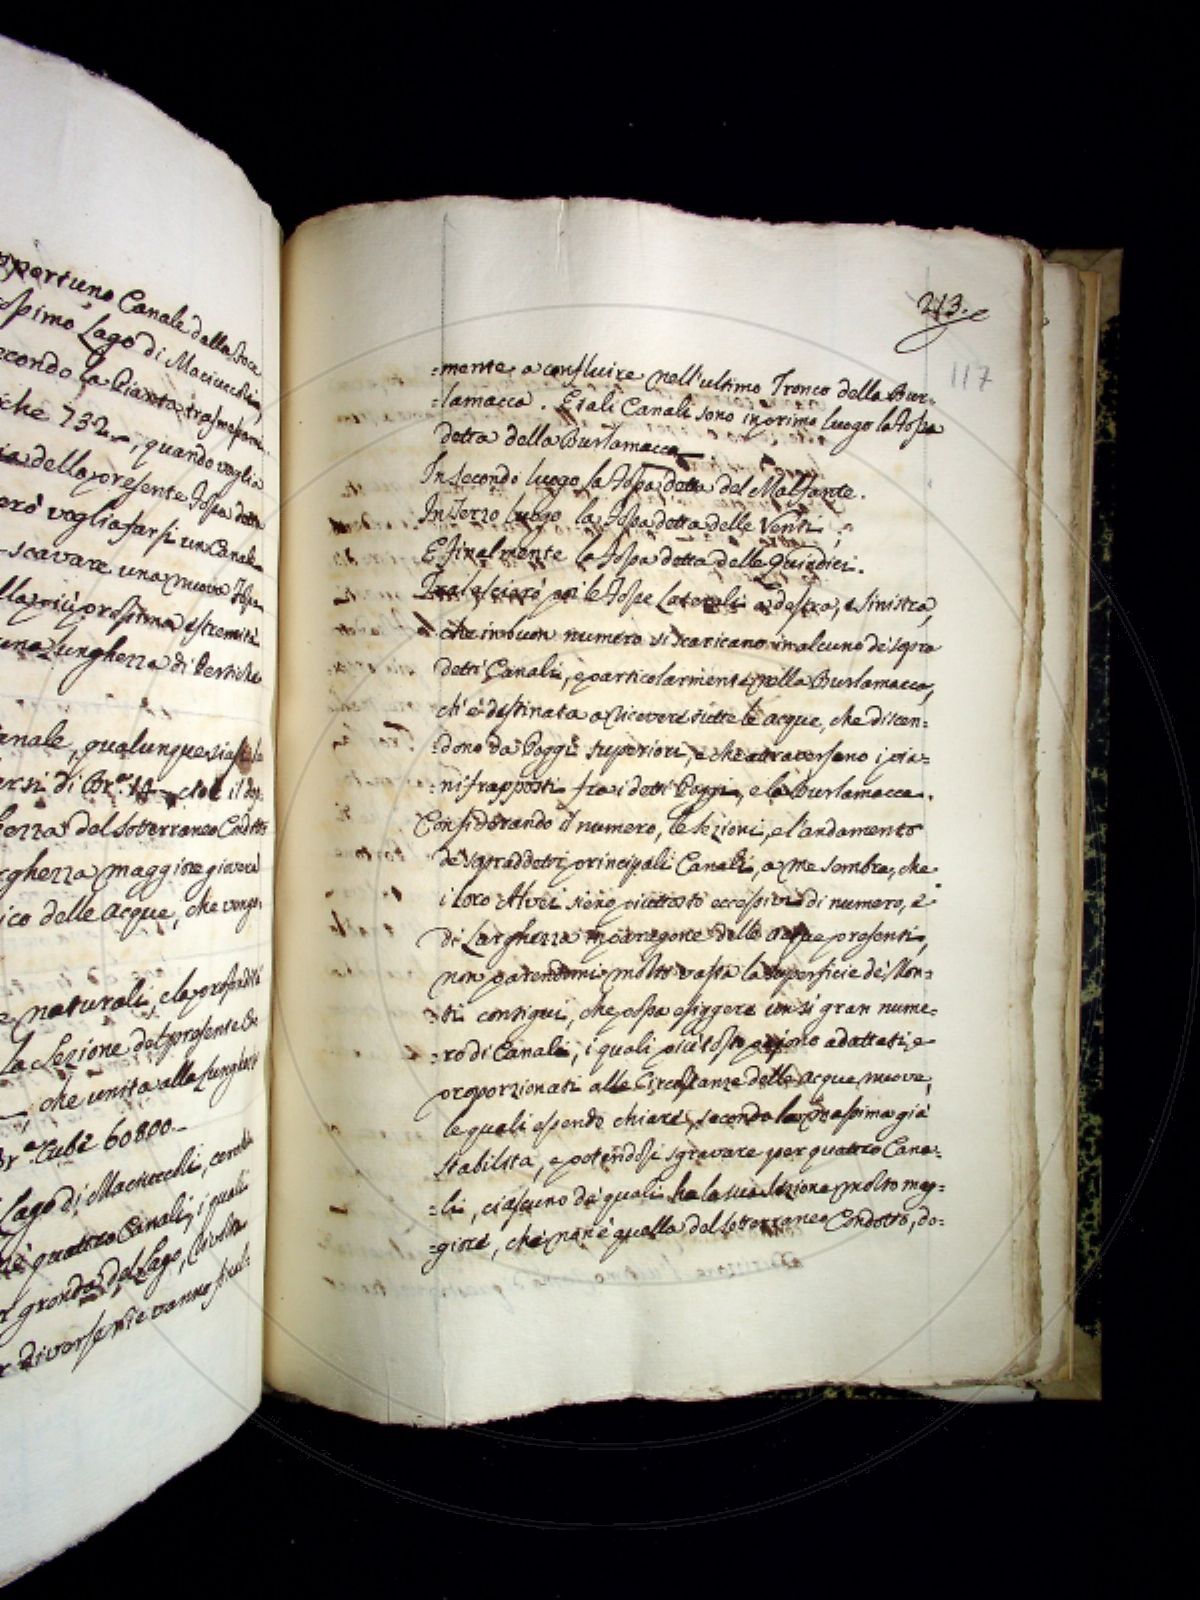 opportuno Canale dalla Foce
prossimo Lago di Maciuccoli,
secondo la Pianta trasmessa
che 732, quando voglia
della presente Fossa detta
però voglia farsi un Canale
scavare una nuova Fossa
alla più prossima estremità
una lunghezza di Pertiche
Canale, qualunque siasi la
versi di Br.ª 14 cioè il
hezza del sotterraneo Condotto
rghezza maggiore gioverà
ico delle acque, che vengo
e naturali, e la profondità
La Sezione del presente
che unita alla lunghezza
Br.ª Cubi 60800.
Lago di Maciuccoli,
quattro Canali, i quali
gronda del Lago,
diverse vie vanno final-
213.
117
=mente a confluire nell'ultimo Tronco della Bur=
=lamacca. E tali Canali sono in primo luogo la Fossa
detta della Burlamacca
In secondo luogo la Fossa detta del Malfante.
In Terzo luogo la Fossa detta delle Venti;
E finalmente la Fossa detta delle Quindici.
Tralascierò poi le Fosse Laterali a destra, e sinistra,
che in buon numero si scaricano in alcuno de' sopra
detti Canali, e particolarmente nella Burlamacca,
ch'è destinata a ricevere tutte le acque, che discen=
=dono da Poggi superiori, e che attraversano i pia=
=ni frapposti fra i detti Poggi, e la Burlamacca.
Considerando il numero, le sezioni, e l'andamento
de' sopraddetti principali Canali, a me sembra, che
i loro Alvei sieno piuttosto eccessivi di numero, e
di Larghezza in paragone delle acque presenti,
non parendomi molto vasta la superficie de' Mon=
=ti contigui, che possa esiggere un sì gran nume=
=ro di Canali, i quali piuttosto adattati, e
proporzionati alle Circostanze delle acque nuove,
le quali essendo chiare, secondo la massima già
stabilita, e potendosi sgravare per quattro Cana=
=li, ciascuno de' quali ha la sua sezione molto mag=
=giore, che non è quella del sotterraneo Condotto, do=